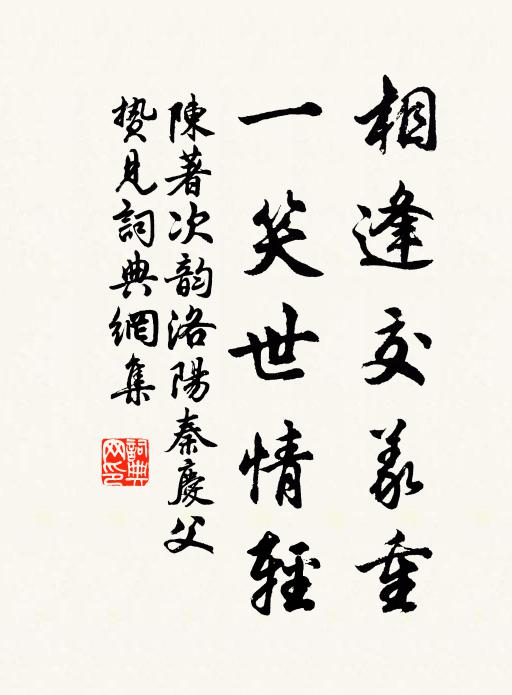 相逢交义重
一笑世情輕
陳著次韵洛陽秦慶父
贽見詞典網集
詞典網印